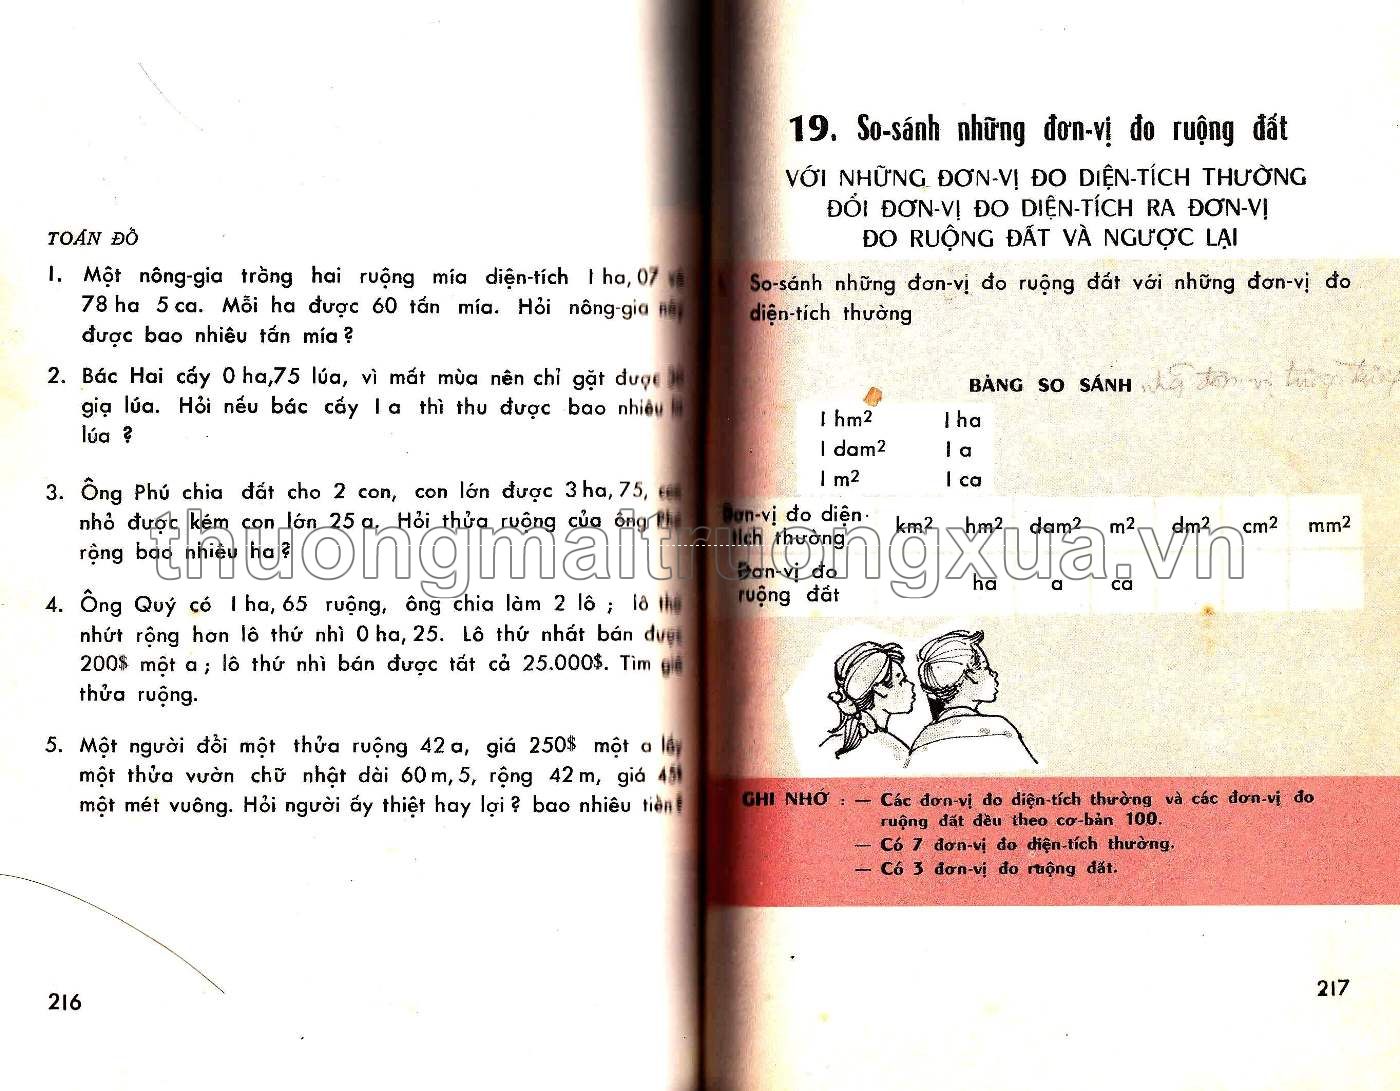 TOÁN ĐỐ
1. Một nông-gia trồng hai ruộng mía diện-tích 1 ha, 07
78 ha 5 ca. Mỗi ha được 60 tấn mía. Hỏi nông-gia
được bao nhiêu tấn mía ?
2. Bác Hai cấy 0 ha,75 lúa, vì mất mùa nên chỉ gặt được
giạ lúa. Hỏi nếu bác cấy 1 a thì thu được bao nhiêu
lúa ?
3. Ông Phú chia đất cho 2 con, con lớn được 3 ha, 75,
nhỏ được kém con lớn 25 a. Hỏi thửa ruộng của ông
rộng bao nhiêu ha ?
4. Ông Quý có 1 ha, 65 ruộng, ông chia làm 2 lô ; lô thứ
nhứt rộng hơn lô thứ nhì 0 ha, 25. Lô thứ nhất bán được
200$ một a ; lô thứ nhì bán được tất cả 25.000$. Tìm giá
thửa ruộng.
5. Một người đổi một thửa ruộng 42 a, giá 250$ một a lấy
một thửa vườn chữ nhật dài 60 m, 5, rộng 42 m, giá
một mét vuông. Hỏi người ấy thiệt hay lợi ? bao nhiêu tiền ?
216
19. So-sánh những đơn-vị đo ruộng đất
VỚI NHỮNG ĐƠN-VỊ ĐO DIỆN-TÍCH THƯỜNG
ĐỔI ĐƠN-VỊ ĐO DIỆN-TÍCH RA ĐƠN-VỊ
ĐO RUỘNG ĐẤT VÀ NGƯỢC LẠI
So-sánh những đơn-vị đo ruộng đất với những đơn-vị đo
diện-tích thường
BẢNG SO SÁNH
1 hm2 1 ha
1 dam2 1 a
1 m2 1 ca
Đơn-vị đo diện-
tích thường km2 hm2 dam2 m2 dm2 cm2 mm2
Đơn-vị đo
ruộng đất ha a ca
GHI NHỚ : — Các đơn-vị đo diện-tích thường và các đơn-vị đo
ruộng đất đều theo cơ-bản 100.
— Có 7 đơn-vị đo diện-tích thường.
— Có 3 đơn-vị đo ruộng đất.
217
thuongmaitruongxua.vn